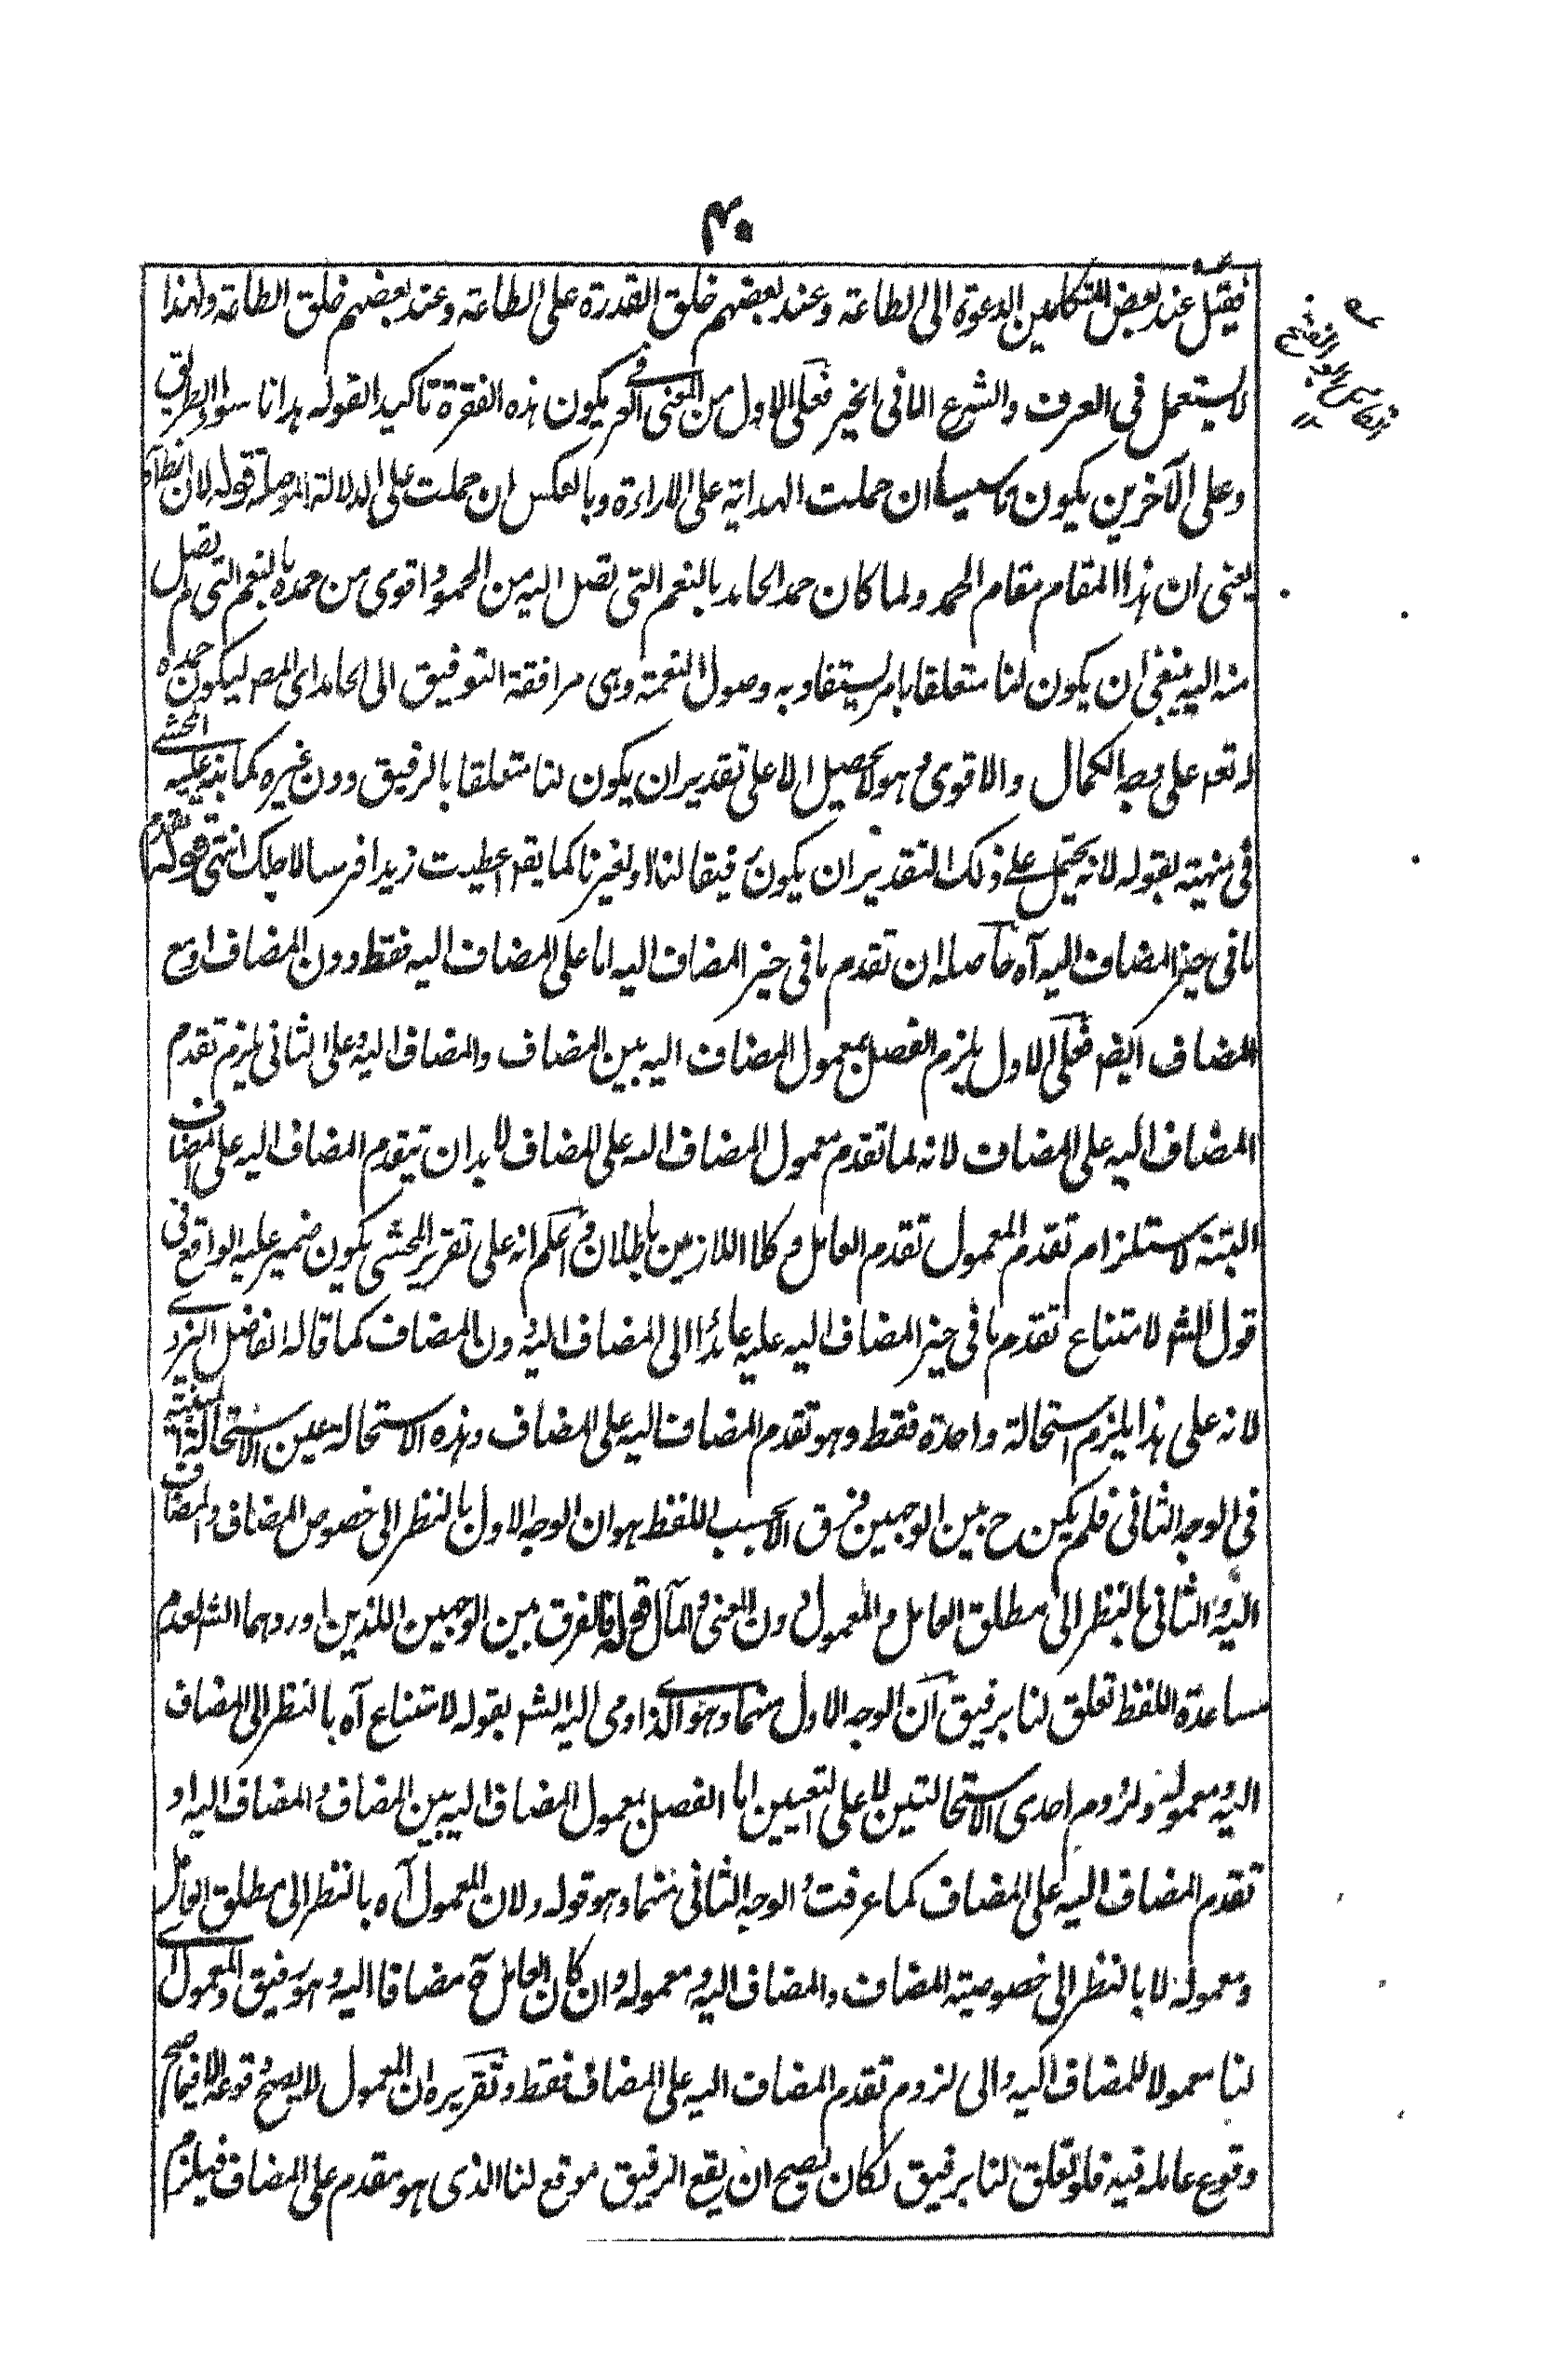 ۴۰
فقيل عند بعض المتكلمين الدعوة الى الطاعة وعند بعضهم خلق القدرة على الطاعة وعند بعضهم خلق الطاعة ولهذا
لا يستعمل فى العرف والشرع الا فى الخير فعلى الاول من المعنى العرفى يكون هذه الفقرة تاكيدا لقوله هدانا سواء الطريق
وعلى الآخرين يكون تاسيسا ان حملت الهداية على الاراءة وبالعكس ان حملت على الدلالة الموصلة قوله لان انطباق
يعنى ان هذا المقام مقام الحمد ولما كان حمد الحامد بالنعم التى تصل اليه من المحمود اقوى من حمده بالنعم التى لم تصل
منه اليه ينبغى ان يكون لنا متعلقا بامر يستفاد به وصول النعمة وهى مرافقة التوفيق الى الحامد اى المصر ليكون حمده
له تعم على وجه الكمال والاقوى وهو لا يحصل الا على تقدير ان يكون لنا متعلقا بالرفيق دون غيره كما نبه عليه المحشى
فى منهيته بقوله لانه يحتمل على ذلك التقدير ان يكون رفيقا لنا او لغيرنا كما يقم اعطيت زيدا فرسا لاجلك انتهى قوله تقدم
ما فى حيز المضاف اليه آه حاصله ان تقدم ما فى حيز المضاف اليه اما على المضاف اليه فقط دون المضاف او مع
المضاف ايضم فعلى الاول يلزم الفصل بمعمول المضاف اليه بين المضاف والمضاف اليه وعلى الثانى يلزم تقدم
المضاف اليه على المضاف لانه لما تقدم معمول المضاف اليه على المضاف لا بد ان يتقدم المضاف اليه على المضاف
البتة لاستلزام تقدم المعمول تقدم العامل وكلا اللازمين باطلان واعلم انه على تقرير المحشى يكون ضمير عليه الواقع فى
قول الشم لامتناع تقدم ما فى حيز المضاف اليه عليه عائدا الى المضاف اليه دون المضاف كما قاله الفاضل اليزدى
لانه على هذا يلزم استحالة واحدة فقط وهو تقدم المضاف اليه على المضاف وهذه الاستحالة عين الاستحالة
فى الوجه الثانى فلم يكن ح بين الوجهين فرق الا بحسب اللفظ هو ان الوجه الاول بالنظر الى خصوص المضاف والمضاف
اليه والثانى بالنظر الى مطلق العامل والمعمول دون المعنى والمآل قوله فالفرق بين الوجهين اللذين اوردهما الشم لعدم
مساعدة اللفظ تعلق لنا برفيق ان الوجه الاول منهما وهو الذى اومى اليه الشم بقوله لامتناع آه بالنظر الى المضاف
اليه ومعموله ولزوم احدى الاستحالتين لا على التعيين اما الفصل بمعمول المضاف اليه بين المضاف والمضاف اليه او
تقدم المضاف اليه على المضاف كما عرفت والوجه الثانى منهما وهو قوله ولان المعمول آه بالنظر الى مطلق العامل
ومعموله لا بالنظر الى خصوصية المضاف والمضاف اليه ومعموله وان كان العامل ح مضافا اليه وهو رفيق والمعمول اى
لنا معمولا للمضاف اليه والى لزوم تقدم المضاف اليه على المضاف فقط وتقريره ان المعمول لا يصح وقوعه الا فيما صح
وقوع عامله فيه فلو تعلق لنا برفيق لكان يصح ان يقع الرفيق موقع لنا الذى هو مقدم على المضاف فيلزم